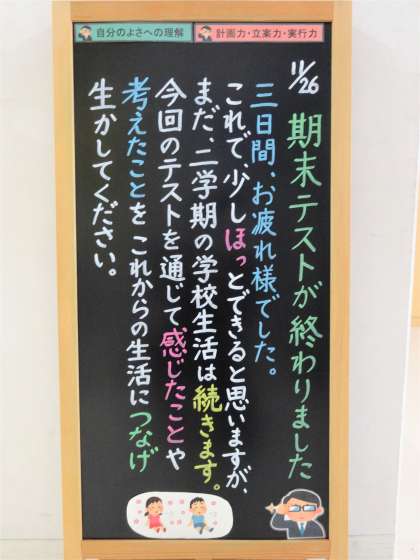 自分のよさへの理解
計画力・立案力・実行力
11/26
期末テストが終わりました
三日間、お疲れ様でした。
これで、少しほっとできると思いますが、
まだ、二学期の学校生活は続きます。
今回のテストを通じて感じたことや
考えたことをこれからの生活につなげ
生かしてください。